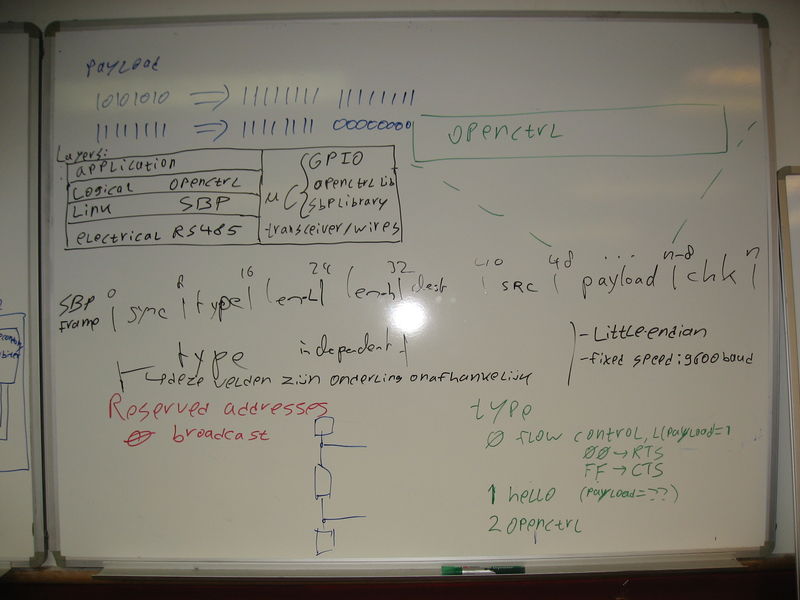 PAYLOAD
10101010 => 11111111 11111111
11111111 => 11111111 00000000
OPENCTRL
Layers:
APPLICATION
LOGICAL OPENCTRL
LINK SBP
ELECTRICAL RS485
μC { GPIO
OPENCTRL LIB
SBP LIBRARY
transceiver/wires
0 8 16 24 32 40 48 ... n-8 n
SBP frame | sync | type | len-L | len-h | dest | SRC | payload | chk |
type independent
deze velden zijn onderling onafhankelijk
- Little-endian
- fixed speed: 9600 baud
Reserved addresses
0 broadcast
type
0 flow control, L(payload=1
00 → RTS
FF → CTS
1 hello (payload=??)
2 OPENCTRL